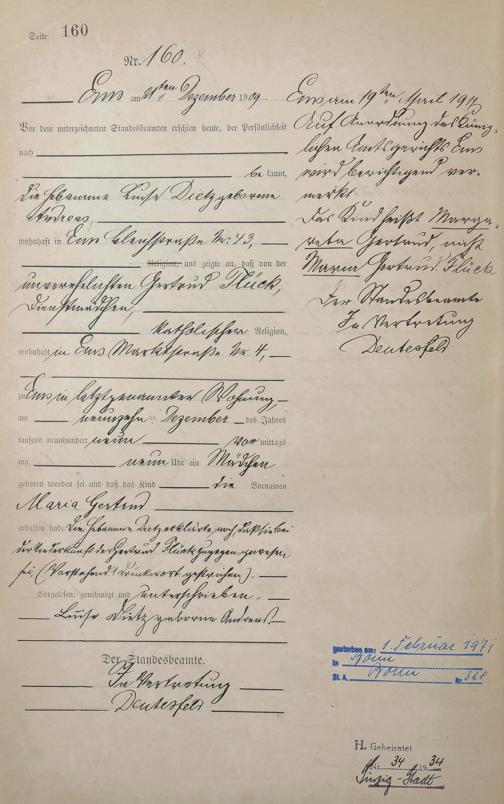 Seite 160
Nr. 160.
Ems am 21ten Dezember 1909.
Vor dem unterzeichneten Standesbeamten erschien heute, der Persönlichkeit
nach
be kannt,
die Hebamme Luise Dietz geborene
Andreas,
wohnhaft in Ems Bleichstraße Nr. 43,
Religion, und zeigte an, daß von der
unverehelichten Gertrud Flück,
Dienstmädchen,
katholischer Religion,
wohnhaft in Ems Marktstraße Nr. 4,
zu Ems in letztgenannter Wohnung,
am neunzehn ten Dezember des Jahres
tausend neunhundert neun vor mittags
um neun Uhr ein Mädchen
geboren worden sei und daß das Kind die Vornamen
Maria Gertrud
erhalten habe. Die Hebamme Dietz erklärte noch, daß sie bei
der Niederkunft der Gertrud Flück zugegen gewesen
sei. (Vorstehend 1 Druckwort gestrichen).
Vorgelesen, genehmigt und unterschrieben.
Luise Dietz geborene Andreas.
Der Standesbeamte.
In Vertretung
Deutesfeld
Ems am 19ten April
Auf Anordnung des König-
lichen Amtsgerichts Ems
wird berichtigend ver-
merkt:
Das Kind heißt Marga-
reta Gertrud, nicht
Maria Gertrud Flück
Der Standesbeamte
In Vertretung
Deutesfeld
gestorben am: 1. Februar 1971
in Bonn
St. A. Bonn Nr. 328
H. Geheiratet
Nr. 34 1934
Sinzig-Stadt